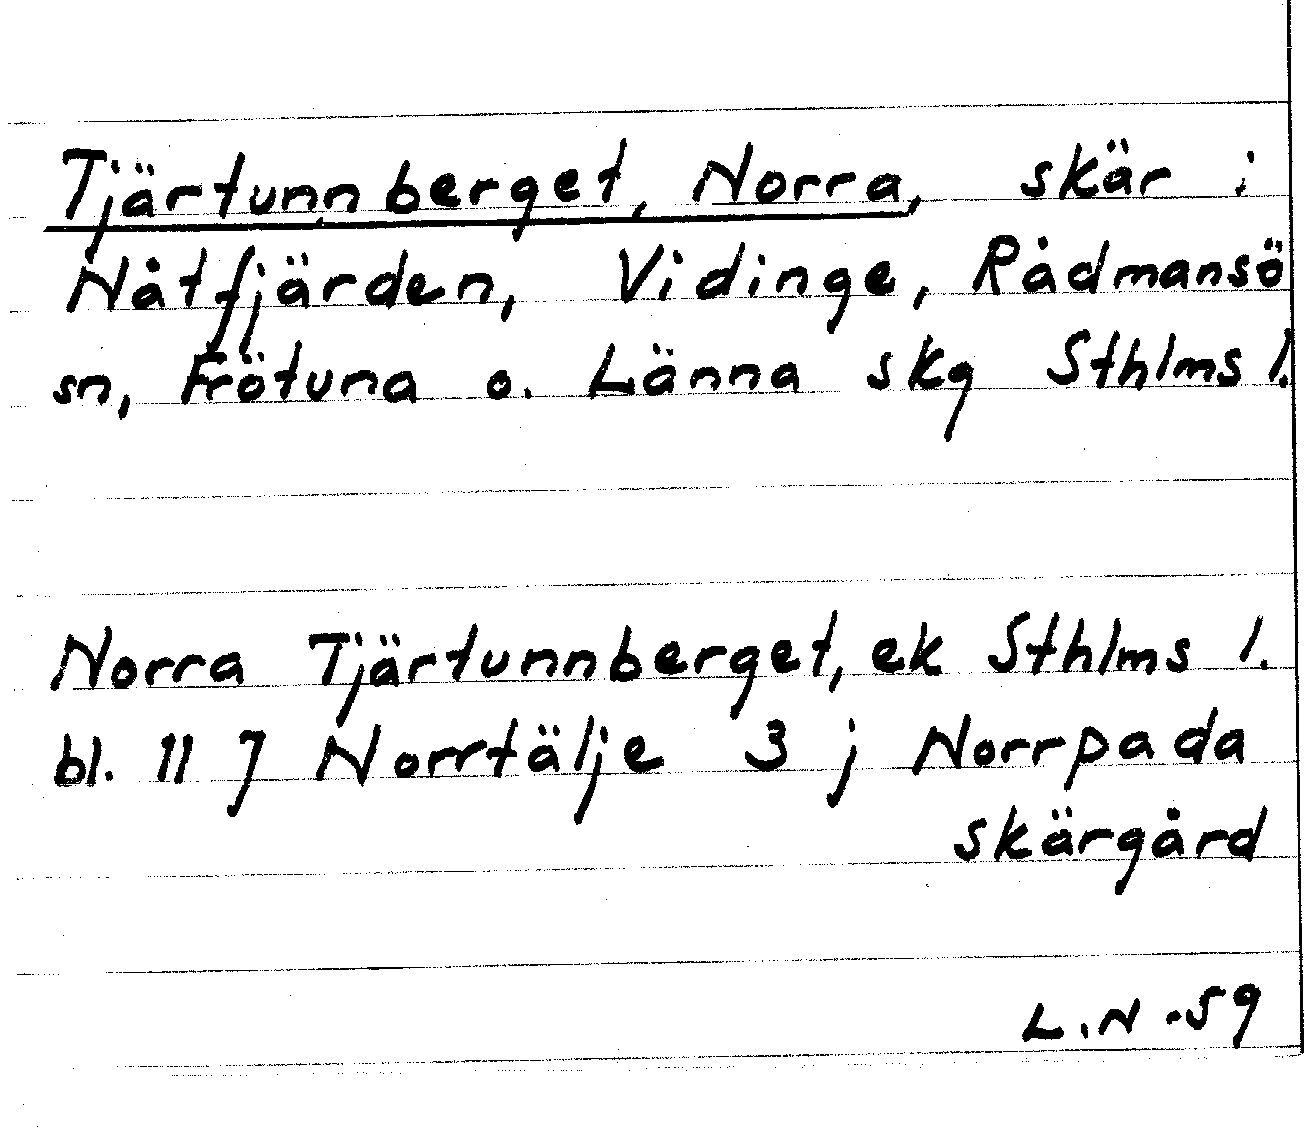 Tjärtunnberget, Norra, skär i
Nåtfjärden, Vidinge, Rådmansö
sn, Frötuna o. Länna skg Sthlms l.
Norra Tjärtunnberget, ek Sthlms l.
bl. 11 J Norrtälje 3 j Norrpada
skärgård
L.N -59